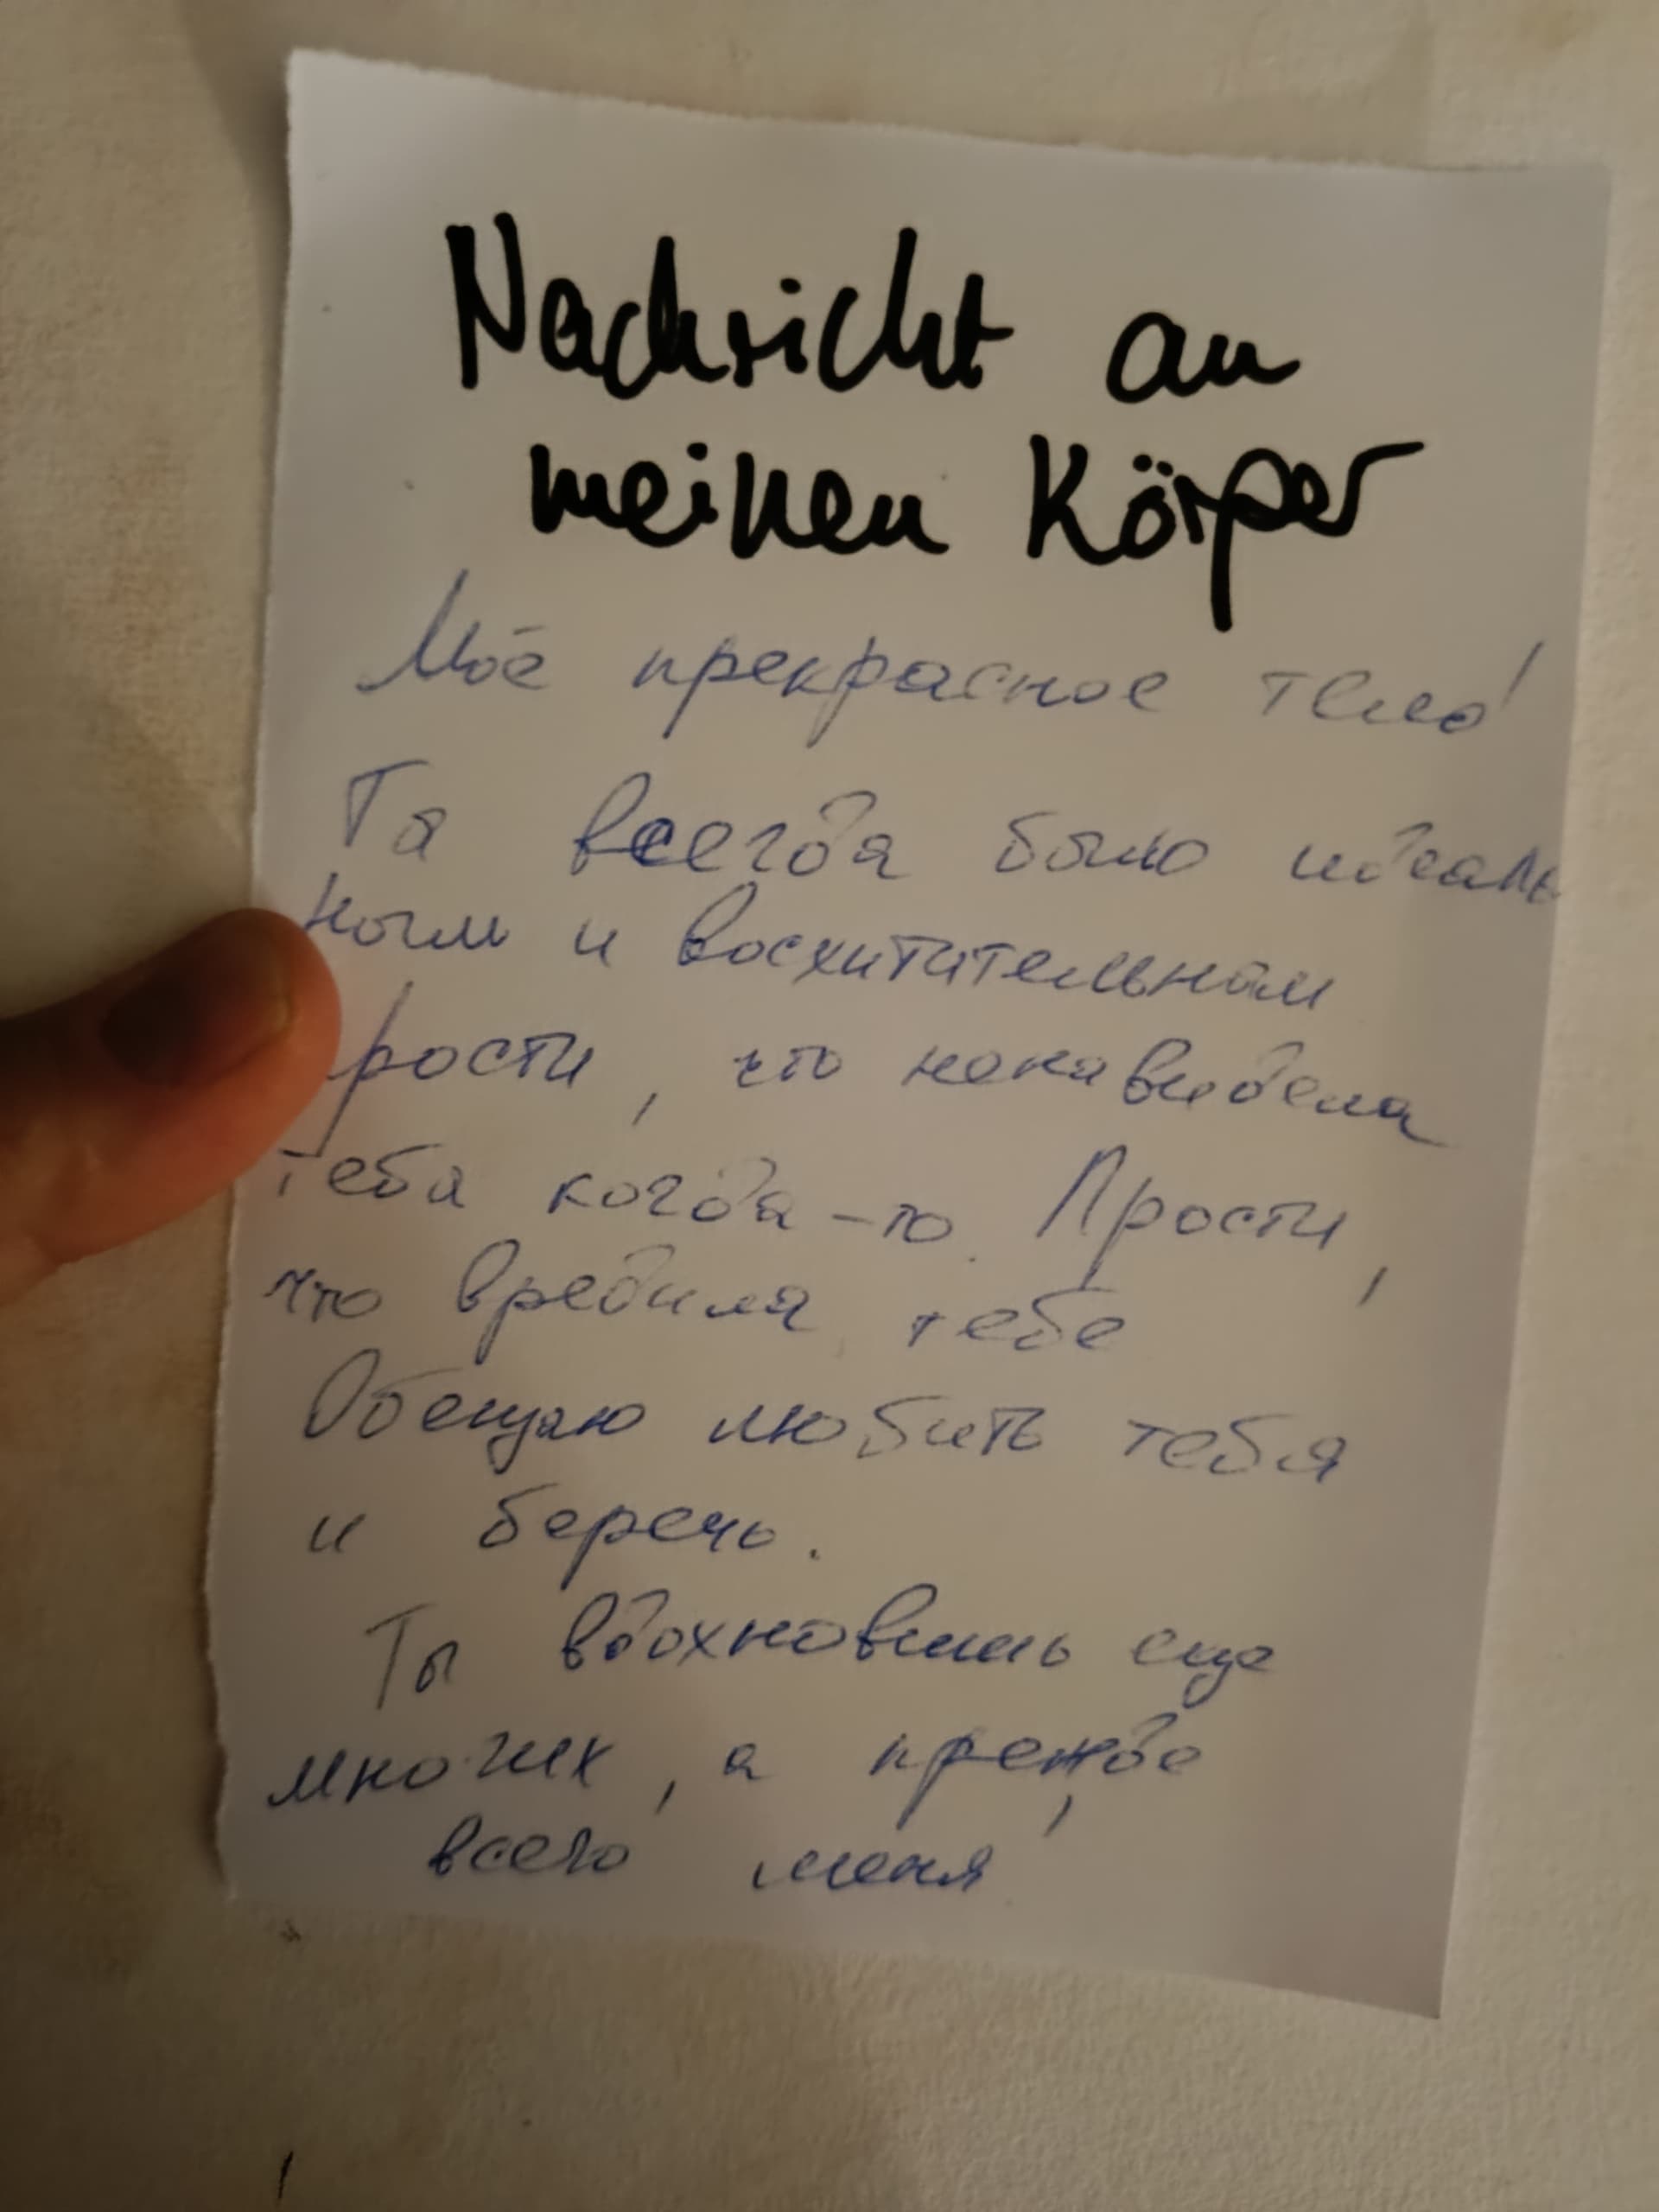 Nachricht an
meinen Körper
Моё прекрасное тело!
Ты всегда было идеаль
ным и восхитительным
рости, что ненавидела
тебя когда-то. Прости,
что вредила тебе
Обещаю любить тебя
и беречь.
Ты вдохновишь еще
многих, а прежде
всего меня!